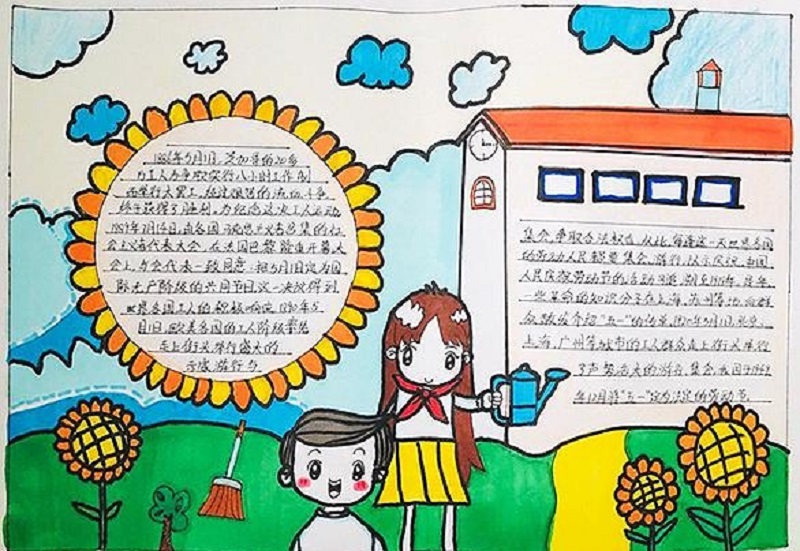 1886年5月1日,芝加哥的20多
万工人为争取实行八小时工作制
而举行大罢工,经过艰苦的流血斗争,
终于获得了胜利。为纪念这次工人运动
1889年7月14日,由各国马克思主义者召集的社
会主义者代表大会,在法国巴黎隆重开幕大
会上,与会代表一致同意:把5月1日定为国
际无产阶级的共同节日这一决议得到
世界各国工人的积极响应1890年5
月1日,欧美各国的工人阶级率先
走上街头举行盛大的
示威游行与
集会,争取合法权益。从此,每逢这一天世界各国
的劳动人民都要集会、游行,以示庆祝。中国
人民庆祝劳动节的活动可追
一些革命的知识分子在上海、
众
上海、广州等城市的工人群众走上街头举行
了声势浩大的游行、集会
年12月将"五一"定为法定的劳动节